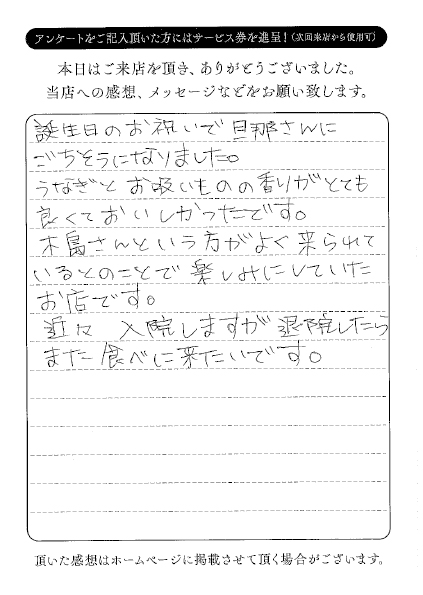 アンケートをご記入頂いた方にはサービス券を進呈!(次回来店から使用可)
本日はご来店を頂き、ありがとうございました。
当店への感想、メッセージなどをお願い致します。
誕生日のお祝いで旦那さんに
ごちそうになりました。
うなぎとお吸いものの香りがとても
良くておいしかったです。
木島さんという方がよく来られて
いるとのことで楽しみにしていた
お店です。
近々 入院しますが退院したら
また食べに来たいです。
頂いた感想はホームページに掲載させて頂く場合がございます。